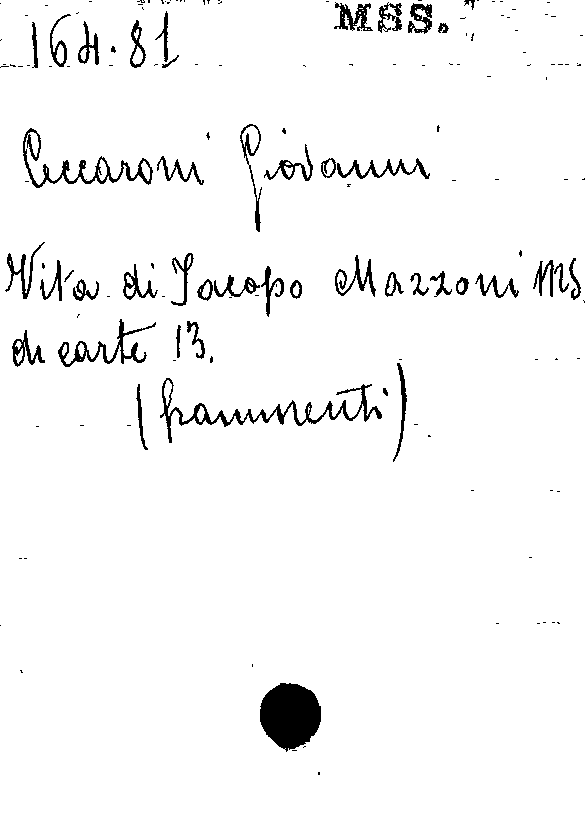 164.81 MSS.
Ceccaroni Giovanni
Vita di Jacopo Mazzoni MS
di carte 13.
(frammenti)